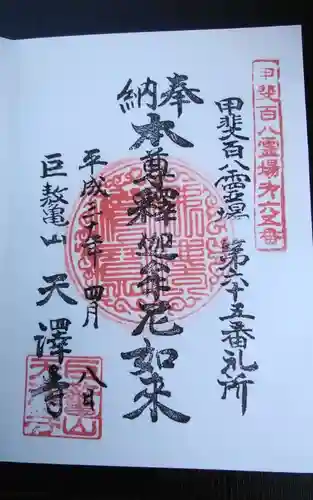 甲斐百八霊場第六五番
甲斐百八霊場 第六十五番札所
奉納
本尊釋迦牟尼如来
平成二十年四月八日
巨敖亀山 天澤寺